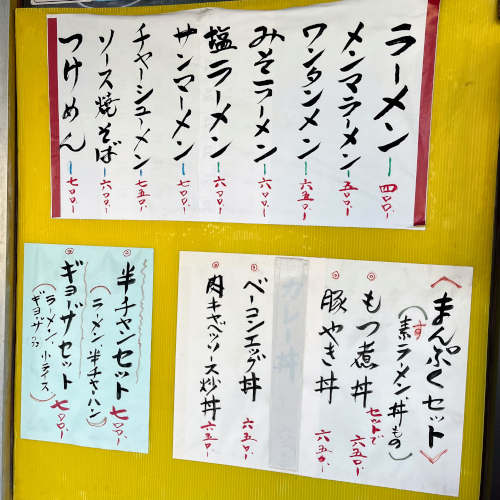 ラーメン 四〇〇、
メンマラーメン 五〇〇、
ワンタンメン 六五〇、
みそラーメン 六〇〇、
塩ラーメン 六〇〇、
サンマーメン 七〇〇、
チャーシューメン 七五〇、
ソース焼そば 六〇〇、
つけめん 七〇〇、
半チャンセット 七〇〇、
(ラーメン、半チャーハン)
ギョーザセット 七〇〇、
(ラーメン、小ライス
ギョーザ
〈まんぷくセット〉
(素ラーメン、丼もの)
す
もつ煮丼 セットで 六五〇、
豚やき丼 六五〇、
カレー丼
ベーコンエッグ丼 六五〇、
肉キャベツソース炒丼 六五〇、